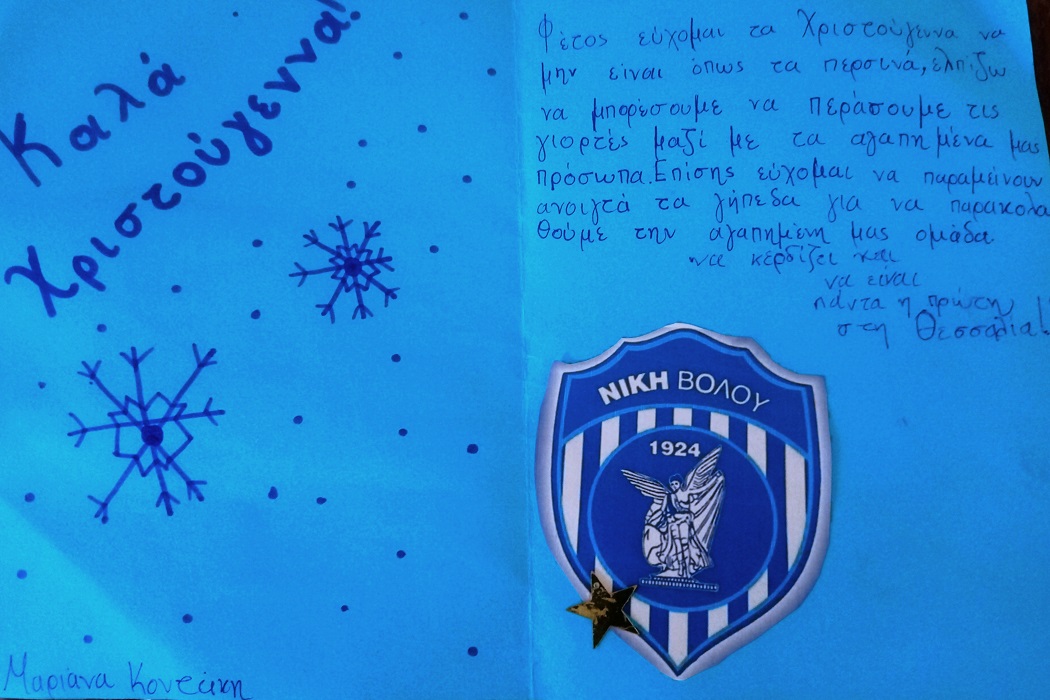 Καλά
Χριστούγεννα!
Μαριάνα
Φέτος εύχομαι τα Χριστούγεννα να
μην είναι όπως τα περσινά, ελπίζω
να μπορέσουμε να περάσουμε τις
γιορτές μαζί με τα αγαπημένα μας
πρόσωπα. Επίσης εύχομαι να παραμείνουν
ανοιχτά τα γήπεδα για να παρακολο
θούμε την αγαπημένη μας ομάδα
να κερδίζει και
να είναι
πάντα η πρώτη
στη Θεσσαλία!
ΝΙΚΗ ΒΟΛΟΥ
1924